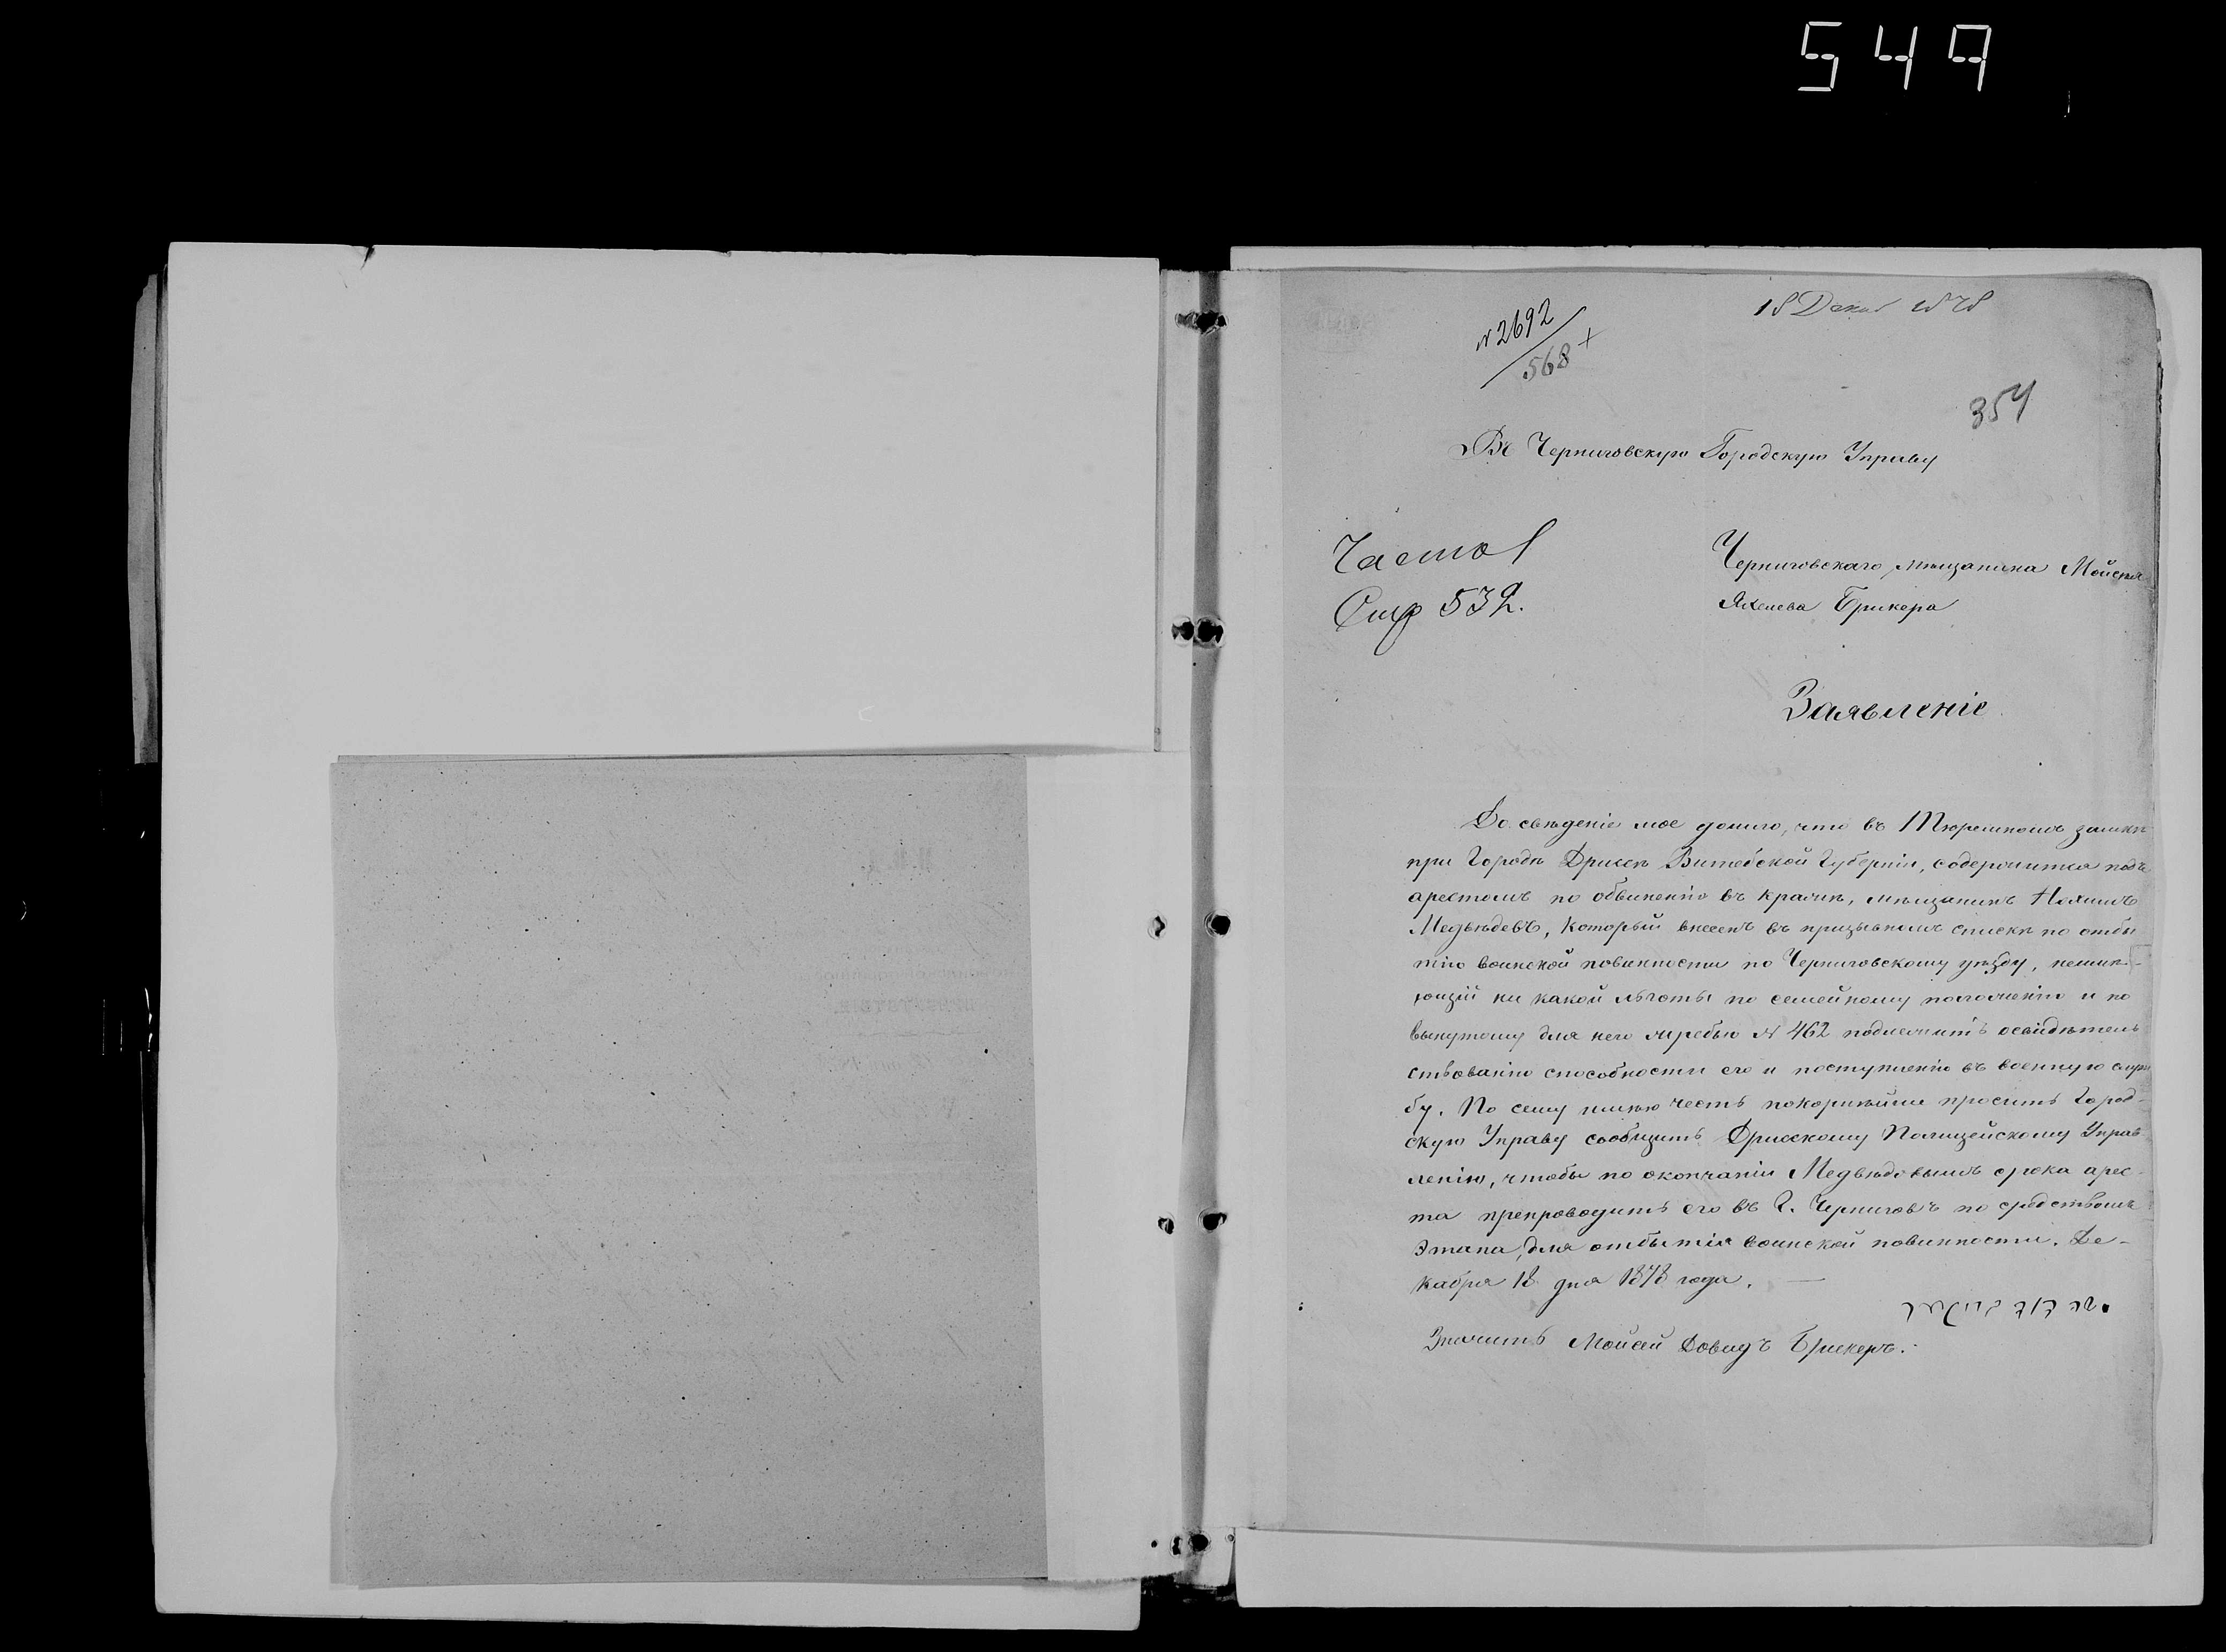 549
18 Декаб 1878
№ 2692
568 +
354
Въ Черниговскую Городскую Управу
Часть I
Стр 532.
Черниговскаго мѣщанина Мойсея
Брикера
Заявленіе
До свѣденіе мое дошло, что въ Тюремномъ замкѣ
при Городѣ Дрисеѣ Витебской Губерніи, содержится подъ
арестомъ по обвиненію въ кражѣ, мѣщанинъ Нохимъ
Медвѣдевъ, который внесенъ въ призывномъ спискѣ по отбы
тію воинской повинности по Черниговскому уѣзду, неимѣ-
ющій ни какой льготы по семейному положенію и по
вынутому для него жребью № 462 подлежитъ освидѣтель
ствованію способности его и поступленію въ военную служ
бу. По сему имѣю честь покорнѣйше просить Город-
скую Управу сообщить Дрисскому Полицейскому Управ-
ленію, чтобы по окончаніи Медвѣдовымъ срока арес-
та препроводить его въ Г. Черниговъ по средствомъ
Этапа, для отбытія воинской повинности. Де-
кабря 18 дня 1878 года.
Значитъ Мойсей Довидъ Брикеръ.